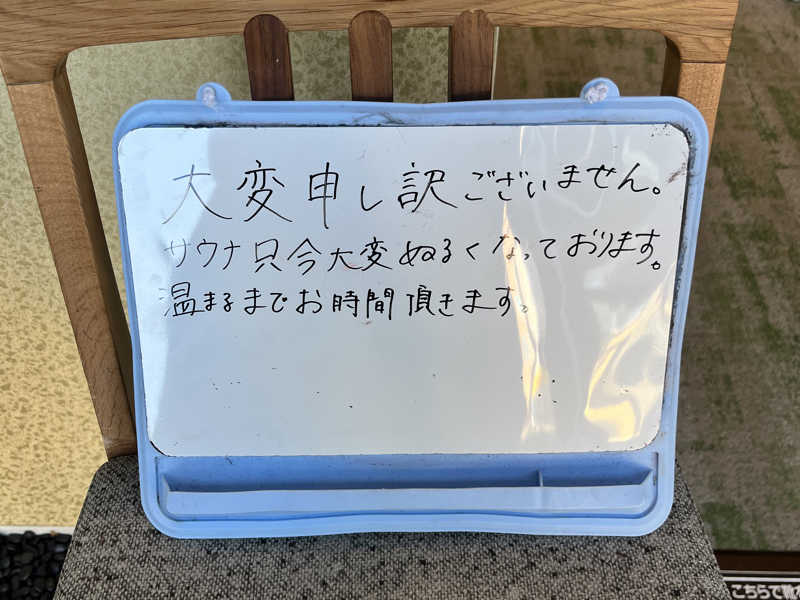 大変申し訳ございません。
サウナ只今大変ぬるくなっております。
温まるまでお時間頂きます。
こちらで靴を